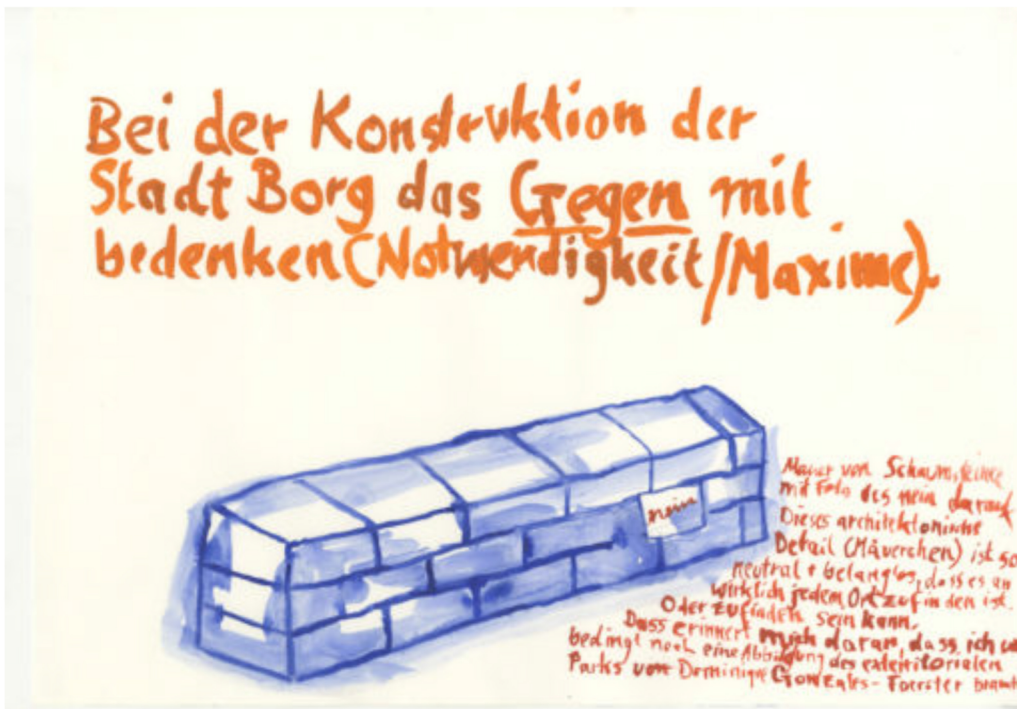 Bei der Konstruktion der
Stadt Borg das Gegen mit
bedenken (Notwendigkeit/Maxime).
nein
Mauer von Schaumsteine
mit Foto des nein darauf
Dieses architektonische
Detail (Mäuerchen) ist so
neutral + belanglos, dass es an
wirklich jedem Ort zu finden ist.
Oder zu finden sein kann.
Dass erinnert mich daran, dass ich
bedingt noch eine Abbildung des exterritorialen
Parks von Dominique Gonzales-Foerster